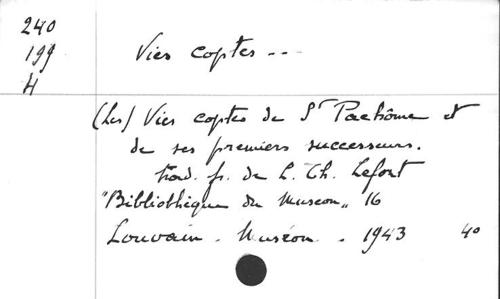 240
199
H
Vies coptes ---
(Les) Vies coptes de St Pachôme et
de ses premiers successeurs.
trad. fr. de L. Th. Lefort
"Bibliothèque du Muséon" 16
Louvain. Muséon. - 1943 4o